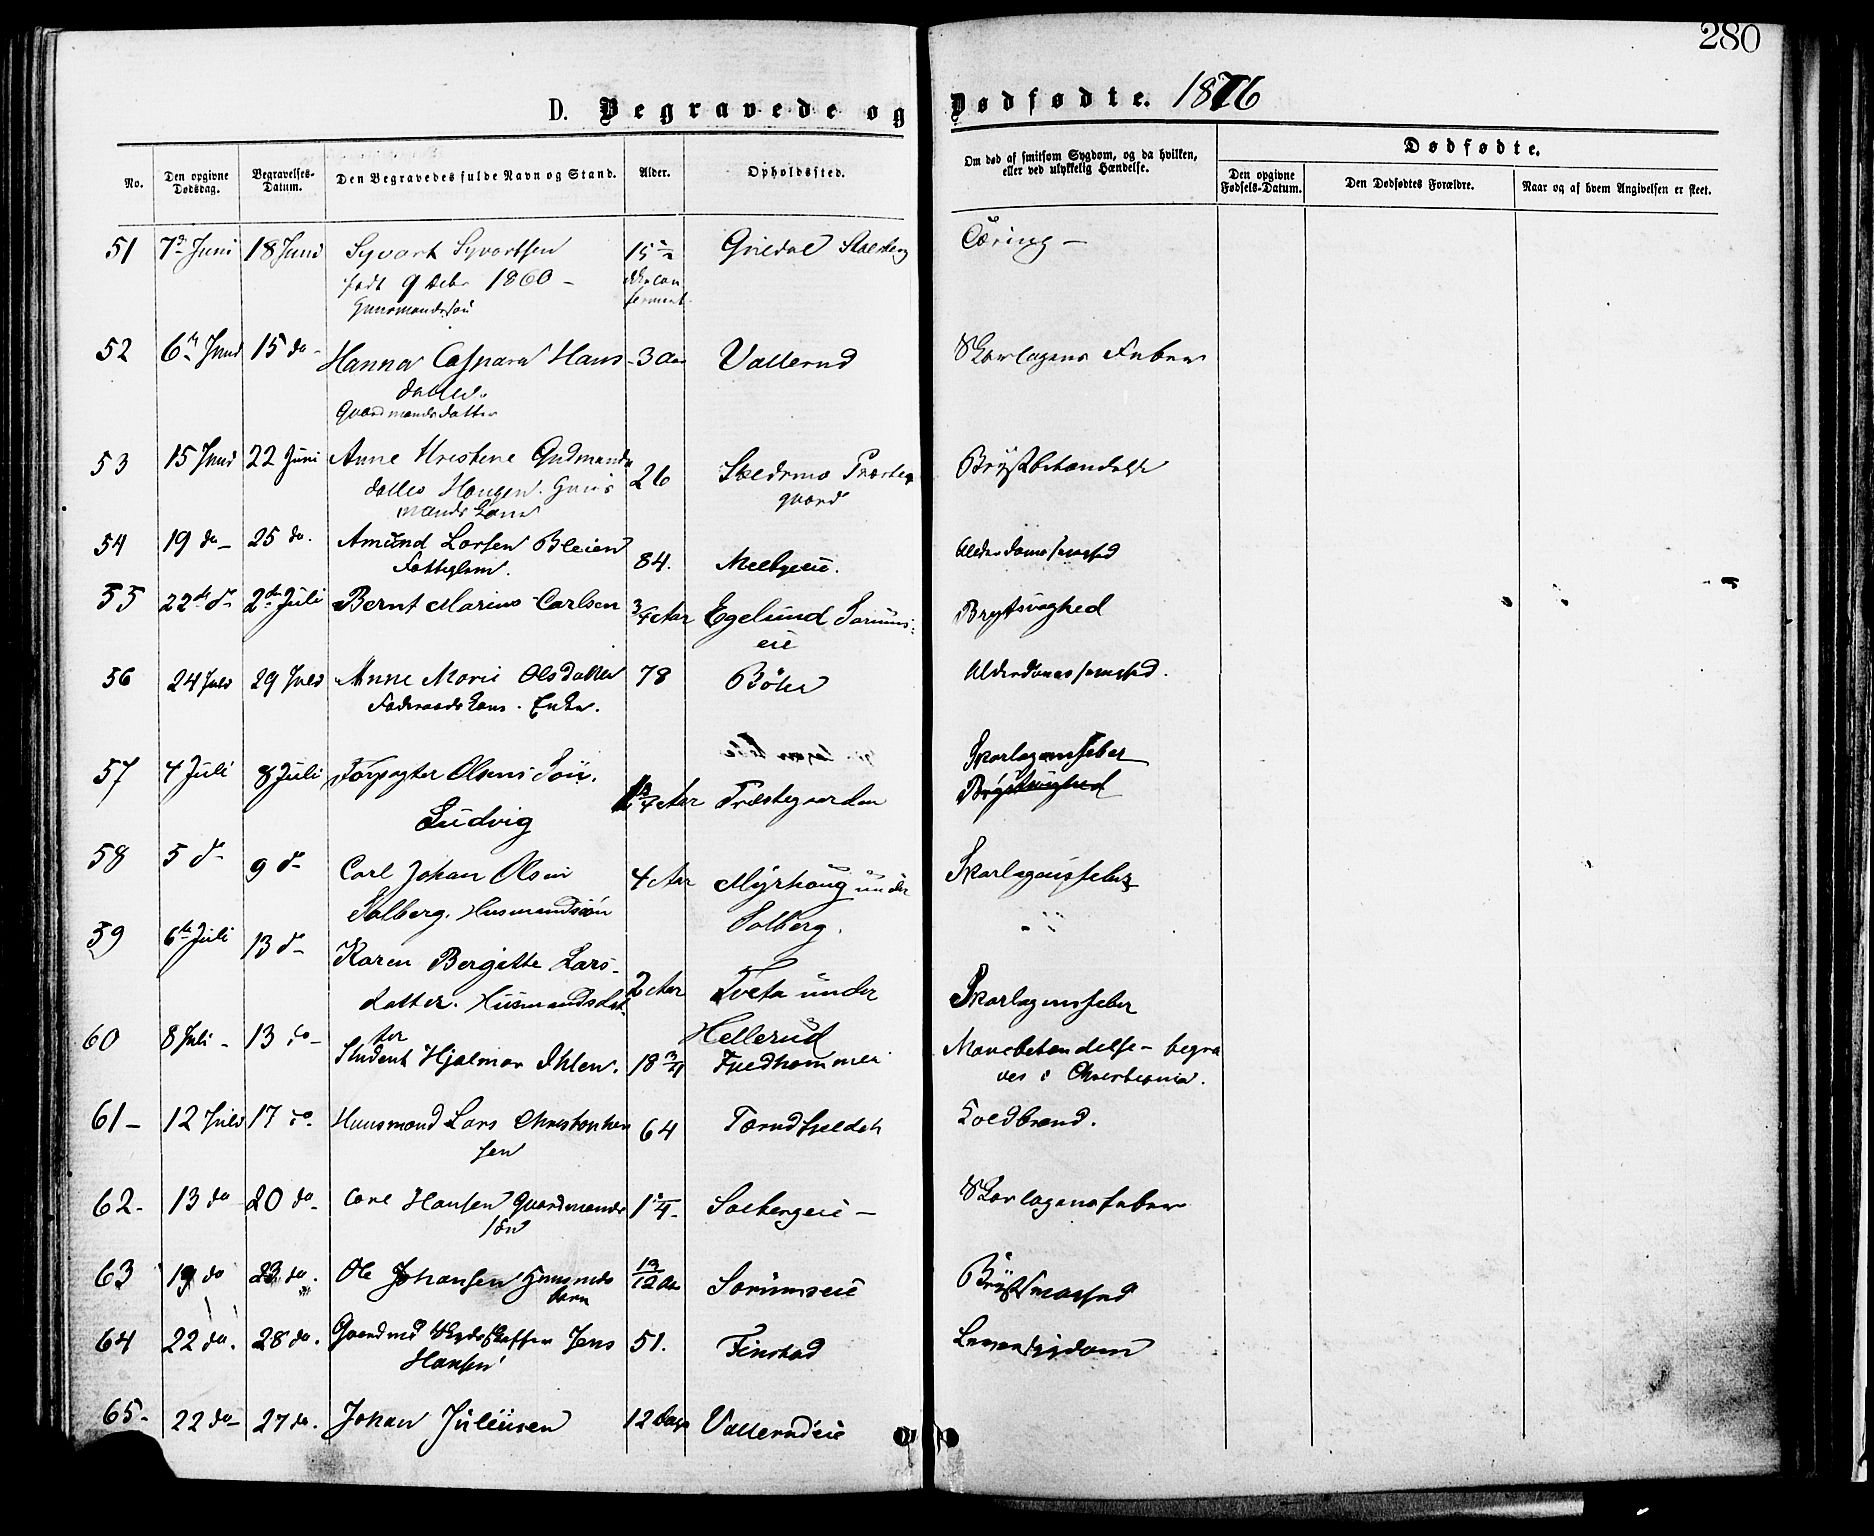 280
D. Begravede og Dødfødte. 1876
No.
Den opgivne Dødsdag.
Begravelses-Datum.
Den Begravedes fulde Navn og Stand.
Alder.
Opholdssted.
Om død af smitsom Sygdom, og da hvilken, eller ved ulykkelig Hændelse.
Dødfødte.
Den opgivne Fødsels-Datum.
Den Dødfødtes Forældre.
Naar og af hvem Angivelsen er skeet.
51 7de Juni 18 Juni Syvart Syvartsen 15 Tæring –
født 9 1860 –
52 6te Juni 15 do – Hanna Caspara Hans 3 Aar Vallerud Skarlagens Feber
datter.
Gaardmandsdatter
53 15 Juni 22 Juni Anne Kristine Gudmunds 26 Skedsmo Præste Brystbetændelse
datter Haugen. Huus gaard
mands Kone
54 19 do – 25 do. Amund Larsen Bleien 84. Alderdomssvaghed
Fattiglem.
55 22de d– 2den Juli Bernt Marius Carlsen 3/4 Aar Egelund Sørums- Brystsvaghed
eie
56 24 Juni 29 Juni Anne Marie Olsdatter 78 Bøler Alderdomssvaghed.
Føderaads Kone. Enke.
57 4 Juli 8 Juli Forpagter Olsens Søn. Skarlagensfeber
Ludvig Præstegaarden Brystsvaghed
58 5 d– 9 d– Carl Johan Olsen 4 Aar Myrhaug under Skarlagensfeber
Solberg. Husmandssøn Solberg.
59 6te Juli 13 d– Karen Bergitte Lars- 2 Aar Tveta under Skarlagensfeber
datter. Husmandsdat Hellerud
ter
60 8 Juli – 13 do – Student Hjalmar Ihlen. 18 3/4 Mavebetændelse – begra
ves i Christiania.
61 – 12 Juli 17 do. Huusmand Lars Christophen 64 Koldbrand.
sen
62 – 13 do 20 do – Carl Hansen Gaardmands 1 1/4 Solbergeie – Skarlagensfeber
søn
63 19 do 23 do. Ole Johansen Huusmds 13/12 Aar Sørumseie Brystsvaghed
barn
64 22 do. 28 do. Gaardmd Jens 51. Finstad Leversygdom
Hansen
65 – 22 do – 27 do. Johan Juliusen 12 Dage Vallerudeie